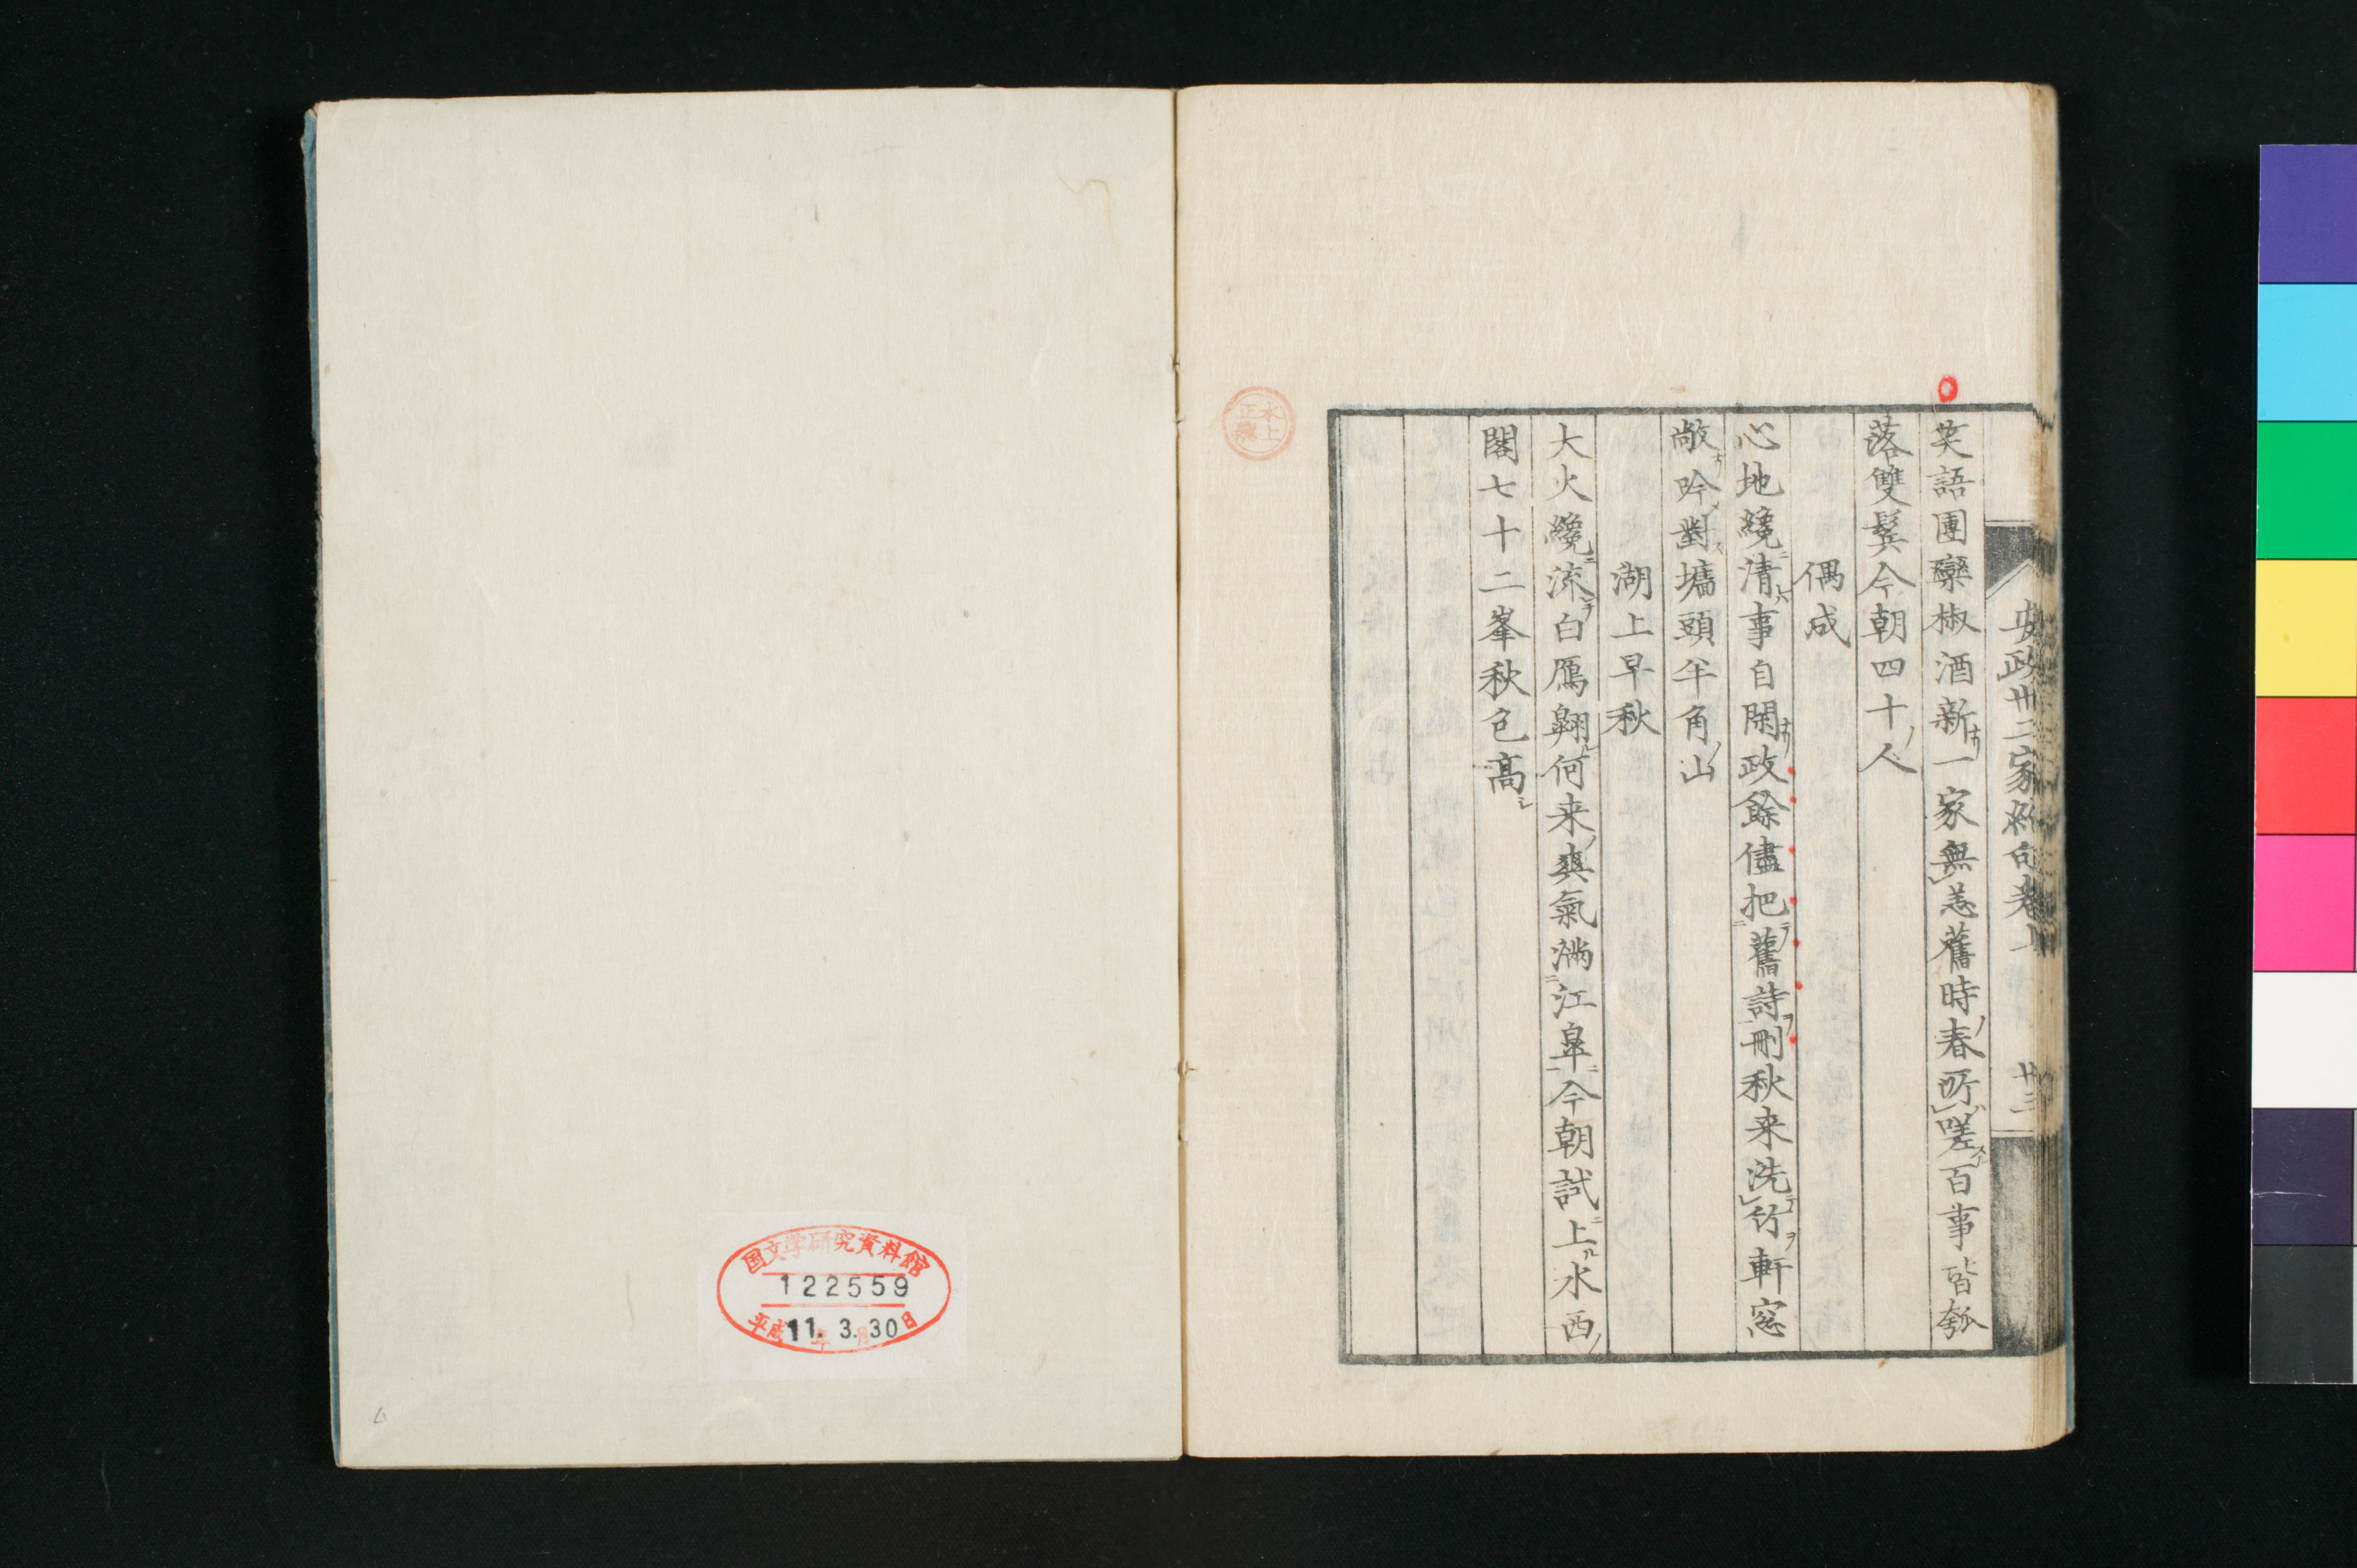 安政卅二家絶句卷上
廿三
笑語團欒椒酒新一家無恙舊時春所嗟百事皆瓠
落雙鬂今朝四十人
偶成
心地纔清事自閑政餘儘把舊詩刪秋来洗竹軒窓
敞吟對墻頭半角山
湖上早秋
大火纔流白鴈翺何来爽氣滿江皐今朝試上水西
閣七十二峯秋色高
水上
正
国文学研究資料館
122559
平成11.3.30日